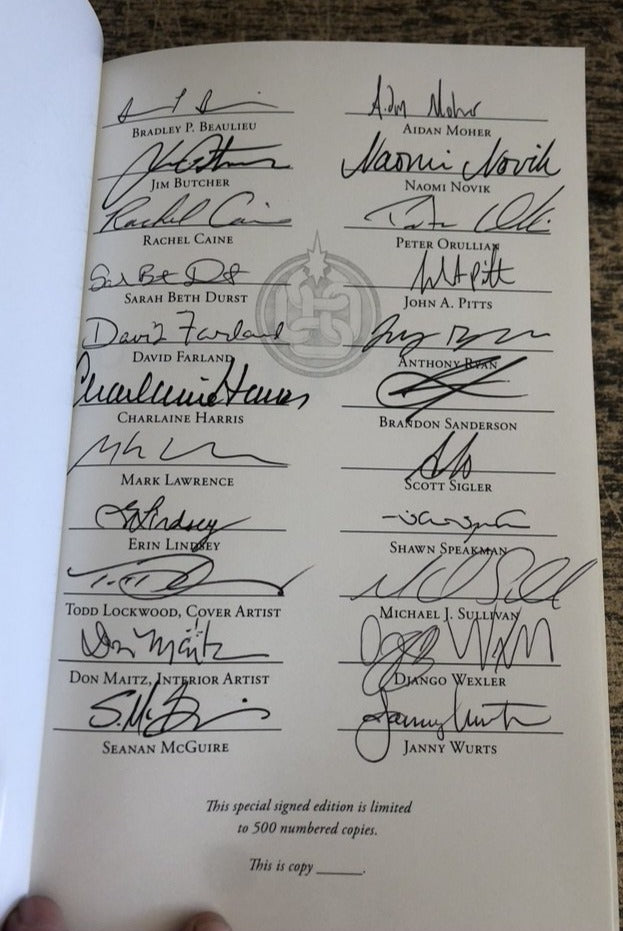 BRADLEY P. BEAULIEU
JIM BUTCHER
Rachel Caine
RACHEL CAINE
SARAH BETH DURST
David Farland
DAVID FARLAND
Charlaine Harris
CHARLAINE HARRIS
MARK LAWRENCE
ERIN LINDSEY
TODD LOCKWOOD, COVER ARTIST
Don Maitz
DON MAITZ, INTERIOR ARTIST
SEANAN MCGUIRE
AIDAN MOHER
Naomi Novik
NAOMI NOVIK
PETER ORULLIAN
JOHN A. PITTS
ANTHONY RYAN
BRANDON SANDERSON
SCOTT SIGLER
SHAWN SPEAKMAN
MICHAEL J. SULLIVAN
DJANGO WEXLER
Janny Wurts
JANNY WURTS
This special signed edition is limited
to 500 numbered copies.
This is copy ______.